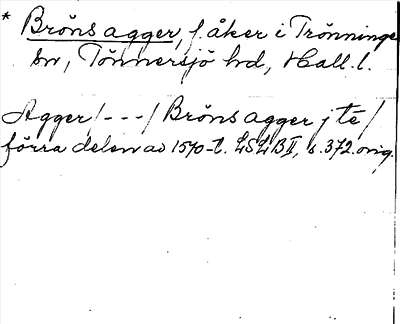 * Bröns agger, f. åker i Trönninge
sn, Tönnersjö hd, Hall. l.
Agger /---/ Bröns agger j te /
förra delen av 1570-t. LSLB II, s. 372. orig.